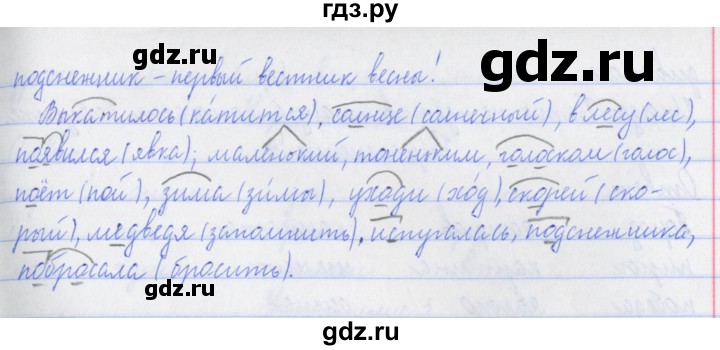 гдз.ру
gdz.ru gdz.ru
подснежник – первый вестник весны!
Выкатилось (ка́тится), солнце (солнечный), в лесу (лес),
появился (явка); маленький, тоненьким, голоском (голос),
поёт (пой), зима (зи́мы), уходи (ход), скорей (ско-
рый), медведя (запомнить), испугалась, подснежника,
побросала (бросить).
gdz.ru gdz.ru
gdz.ru